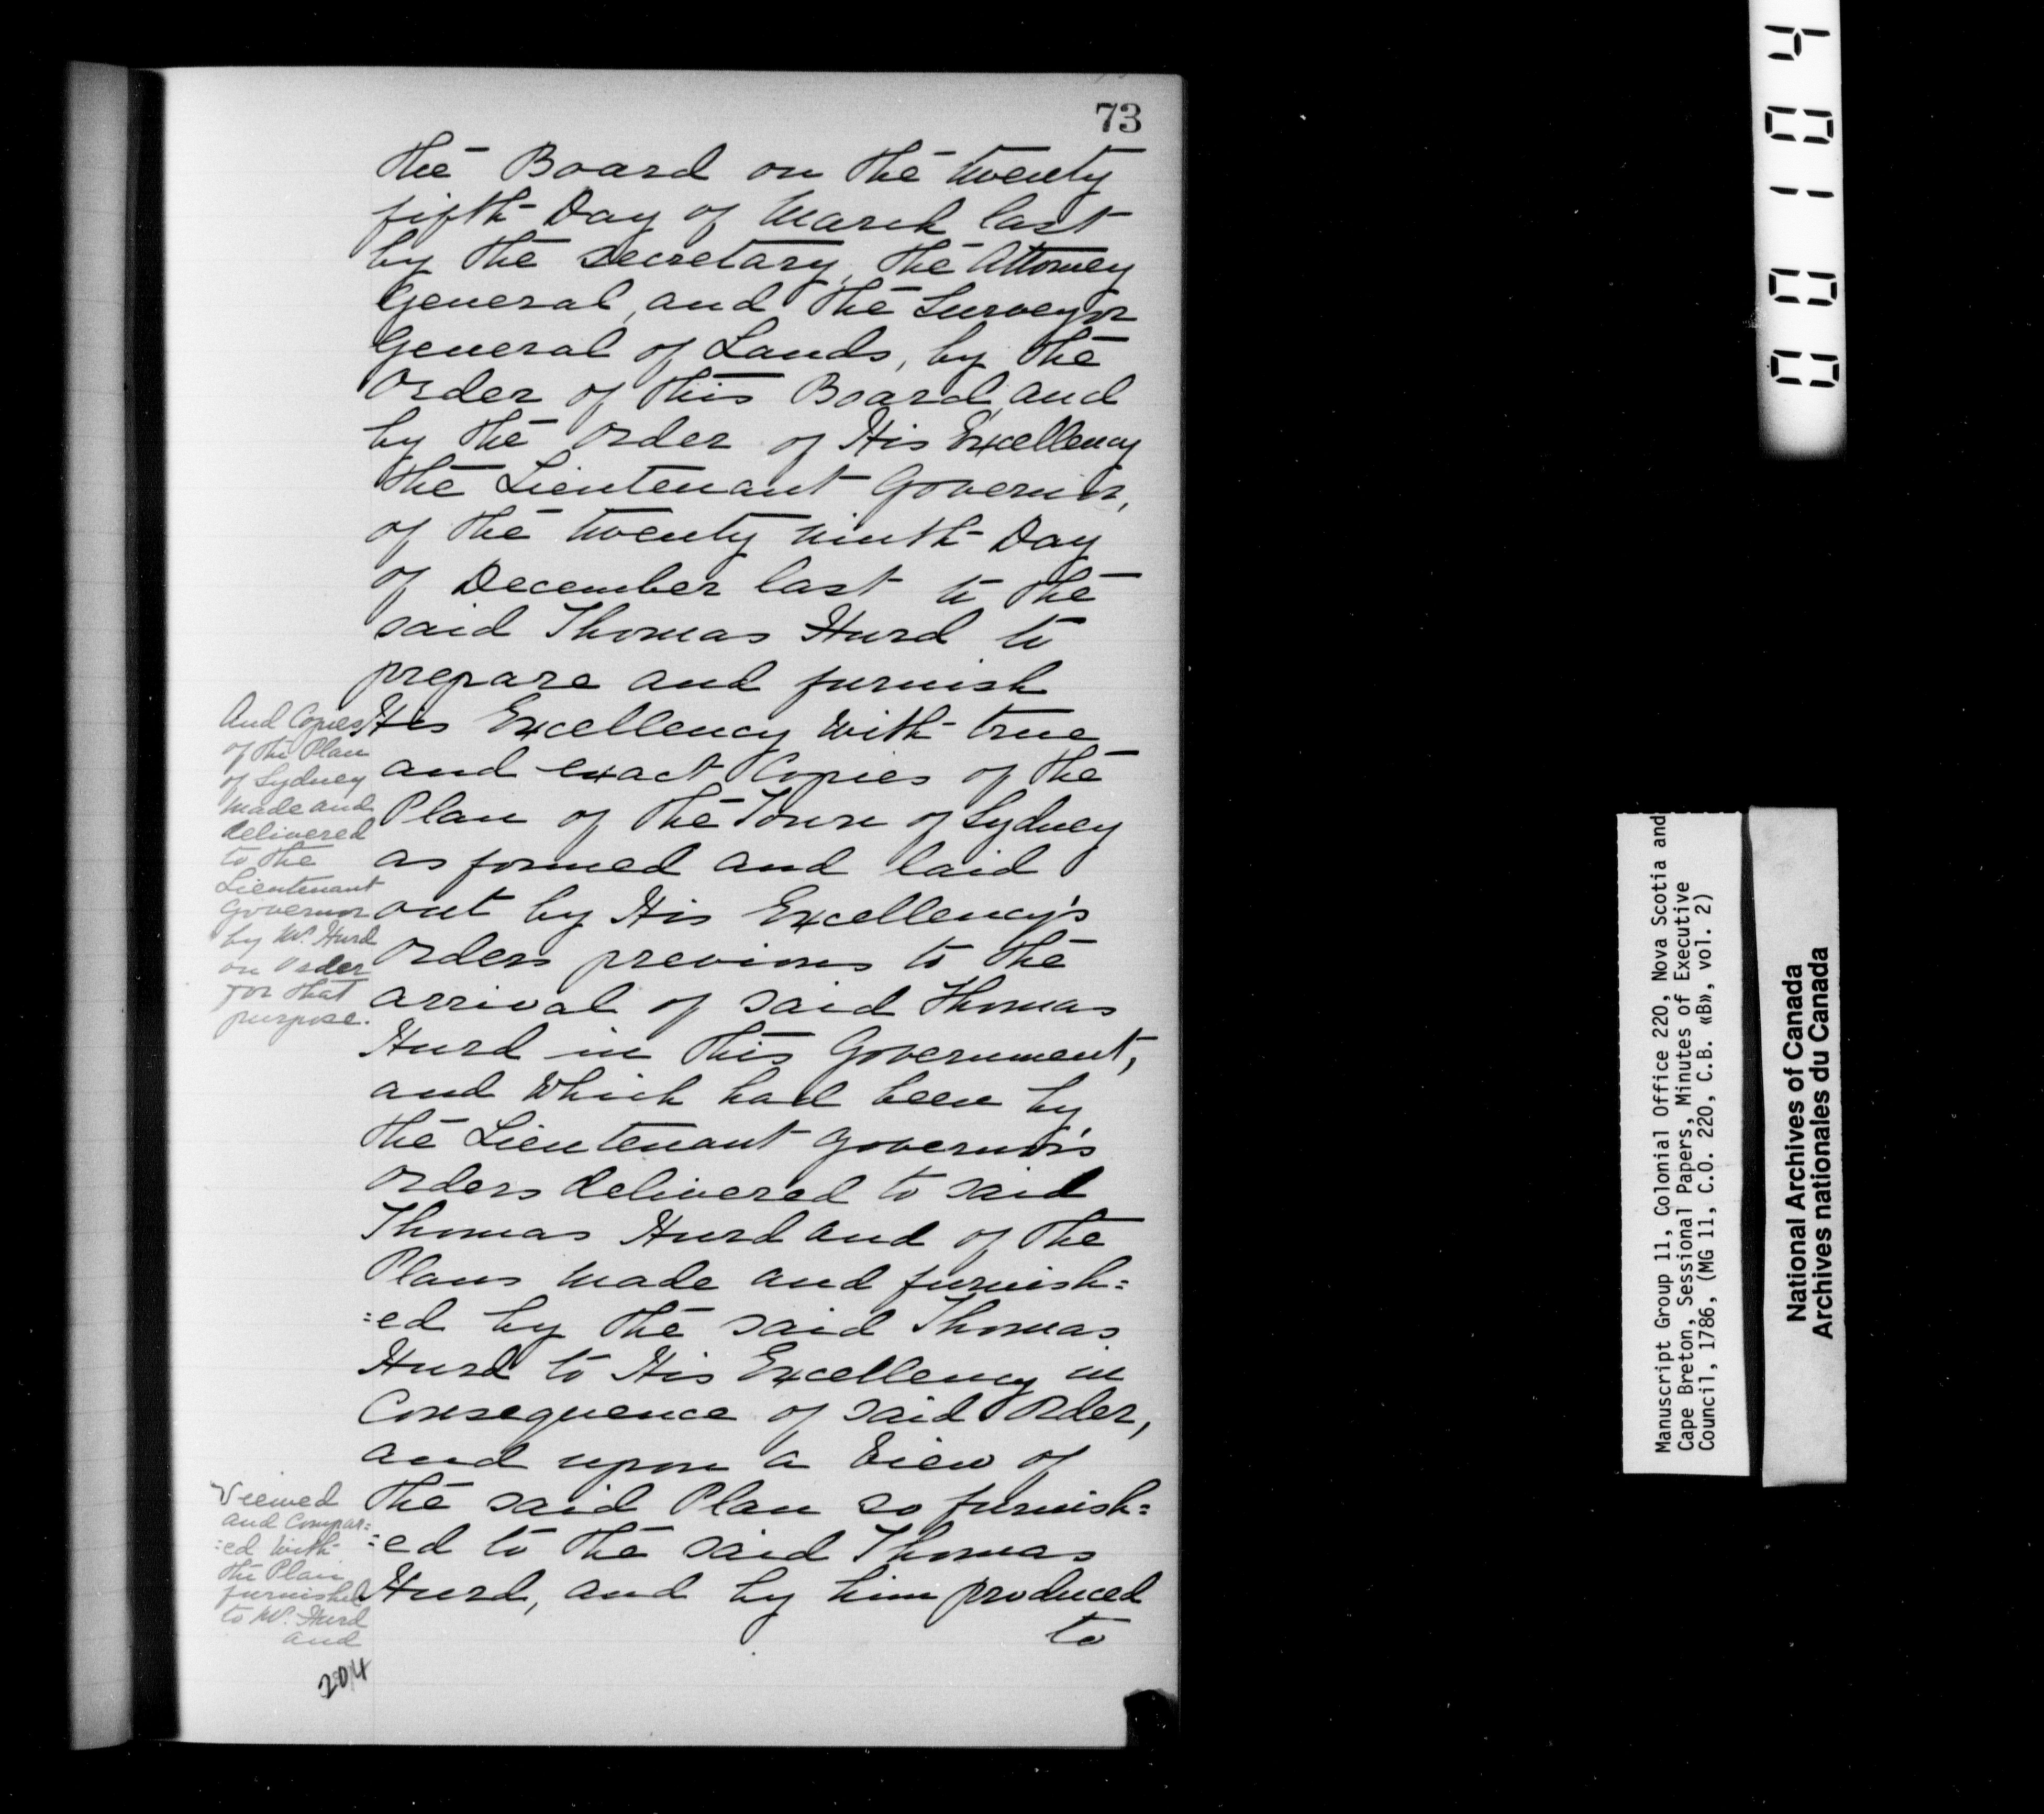 73
the Board on the twenty
fifth Day of March last
by the Secretary, the Attorney
General, and the Surveyor
General of Lands, by the
Order of this Board, and
by the Order of His Excellency
the Lieutenant Governor,
of the twenty ninth Day
of December last to the
said Thomas Hurd to
prepare and furnish
His Excellency with true
and exact Copies of the
Plan of the Town of Sydney
as formed and laid
out by His Excellency's
Orders previous to the
arrival of said Thomas
Hurd in this Government,
and which had been by
the Lieutenant Governor's
Orders delivered to said
Thomas Hurd and of the
Plans made and furnish=
=ed by the said Thomas
Hurd to His Excellency in
Consequence of said Order,
and upon a View of
the said Plan so furnish=
=ed to the said Thomas
Hurd, and by him produced
to
And Copies
of the Plan
of Sydney
made and
delivered
to the
Lieutenant
Governor
by Mr. Hurd
on Order
for that
purpose.
Viewed
and Compar=
=ed with
the Plan
furnished
to Mr. Hurd
and
204
00104
Manuscript Group 11, Colonial Office 220, Nova Scotia and
Cape Breton, Sessional Papers, Minutes of Executive
Council, 1786, (MG 11, C.O. 220, C.B. «B», vol. 2)
National Archives of Canada
Archives nationales du Canada